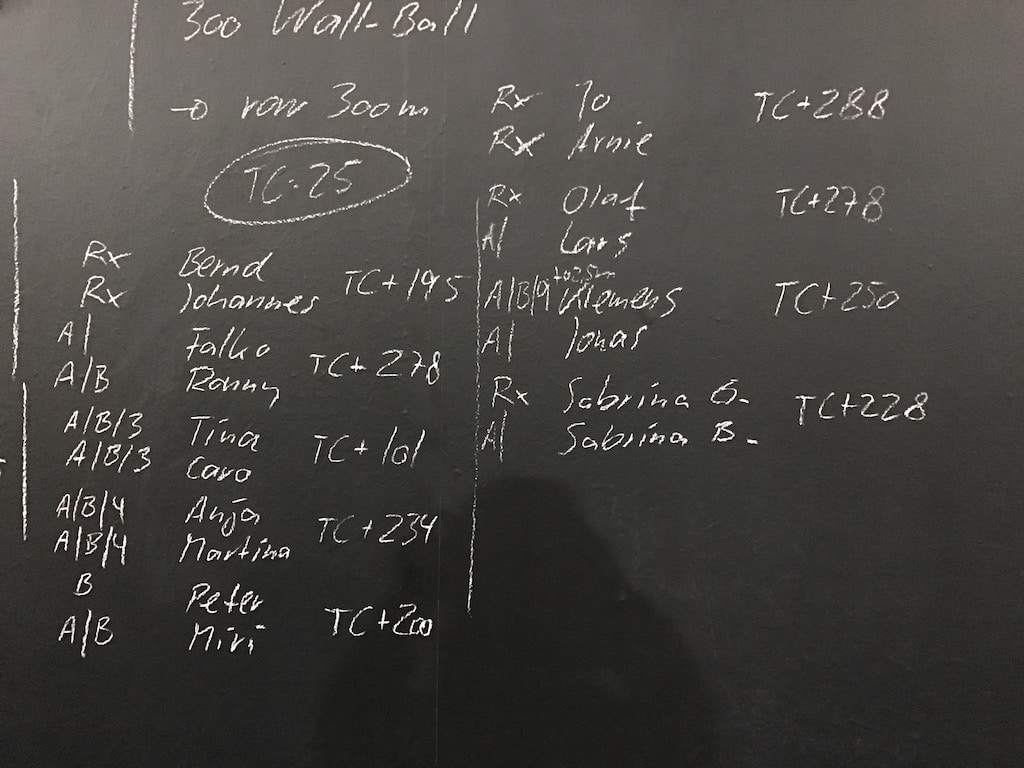 300 Wall-Ball
→ row 300m
TC: 25
Rx Bernd
Rx Johannes TC+195
A/ Falko
A/B Ronny TC+278
A/B/3 Tina
A/B/3 Caro TC+101
A/B/4 Anja
A/B/4 Martina TC+234
B Peter
A/B Miri TC+200
Rx Jo TC+288
Rx Arnie
Rx Olaf TC+278
A/ Lars
A/B/9 Klemens TC+250
A/ Jonas
Rx Sabrina G. TC+228
A/ Sabrina B.